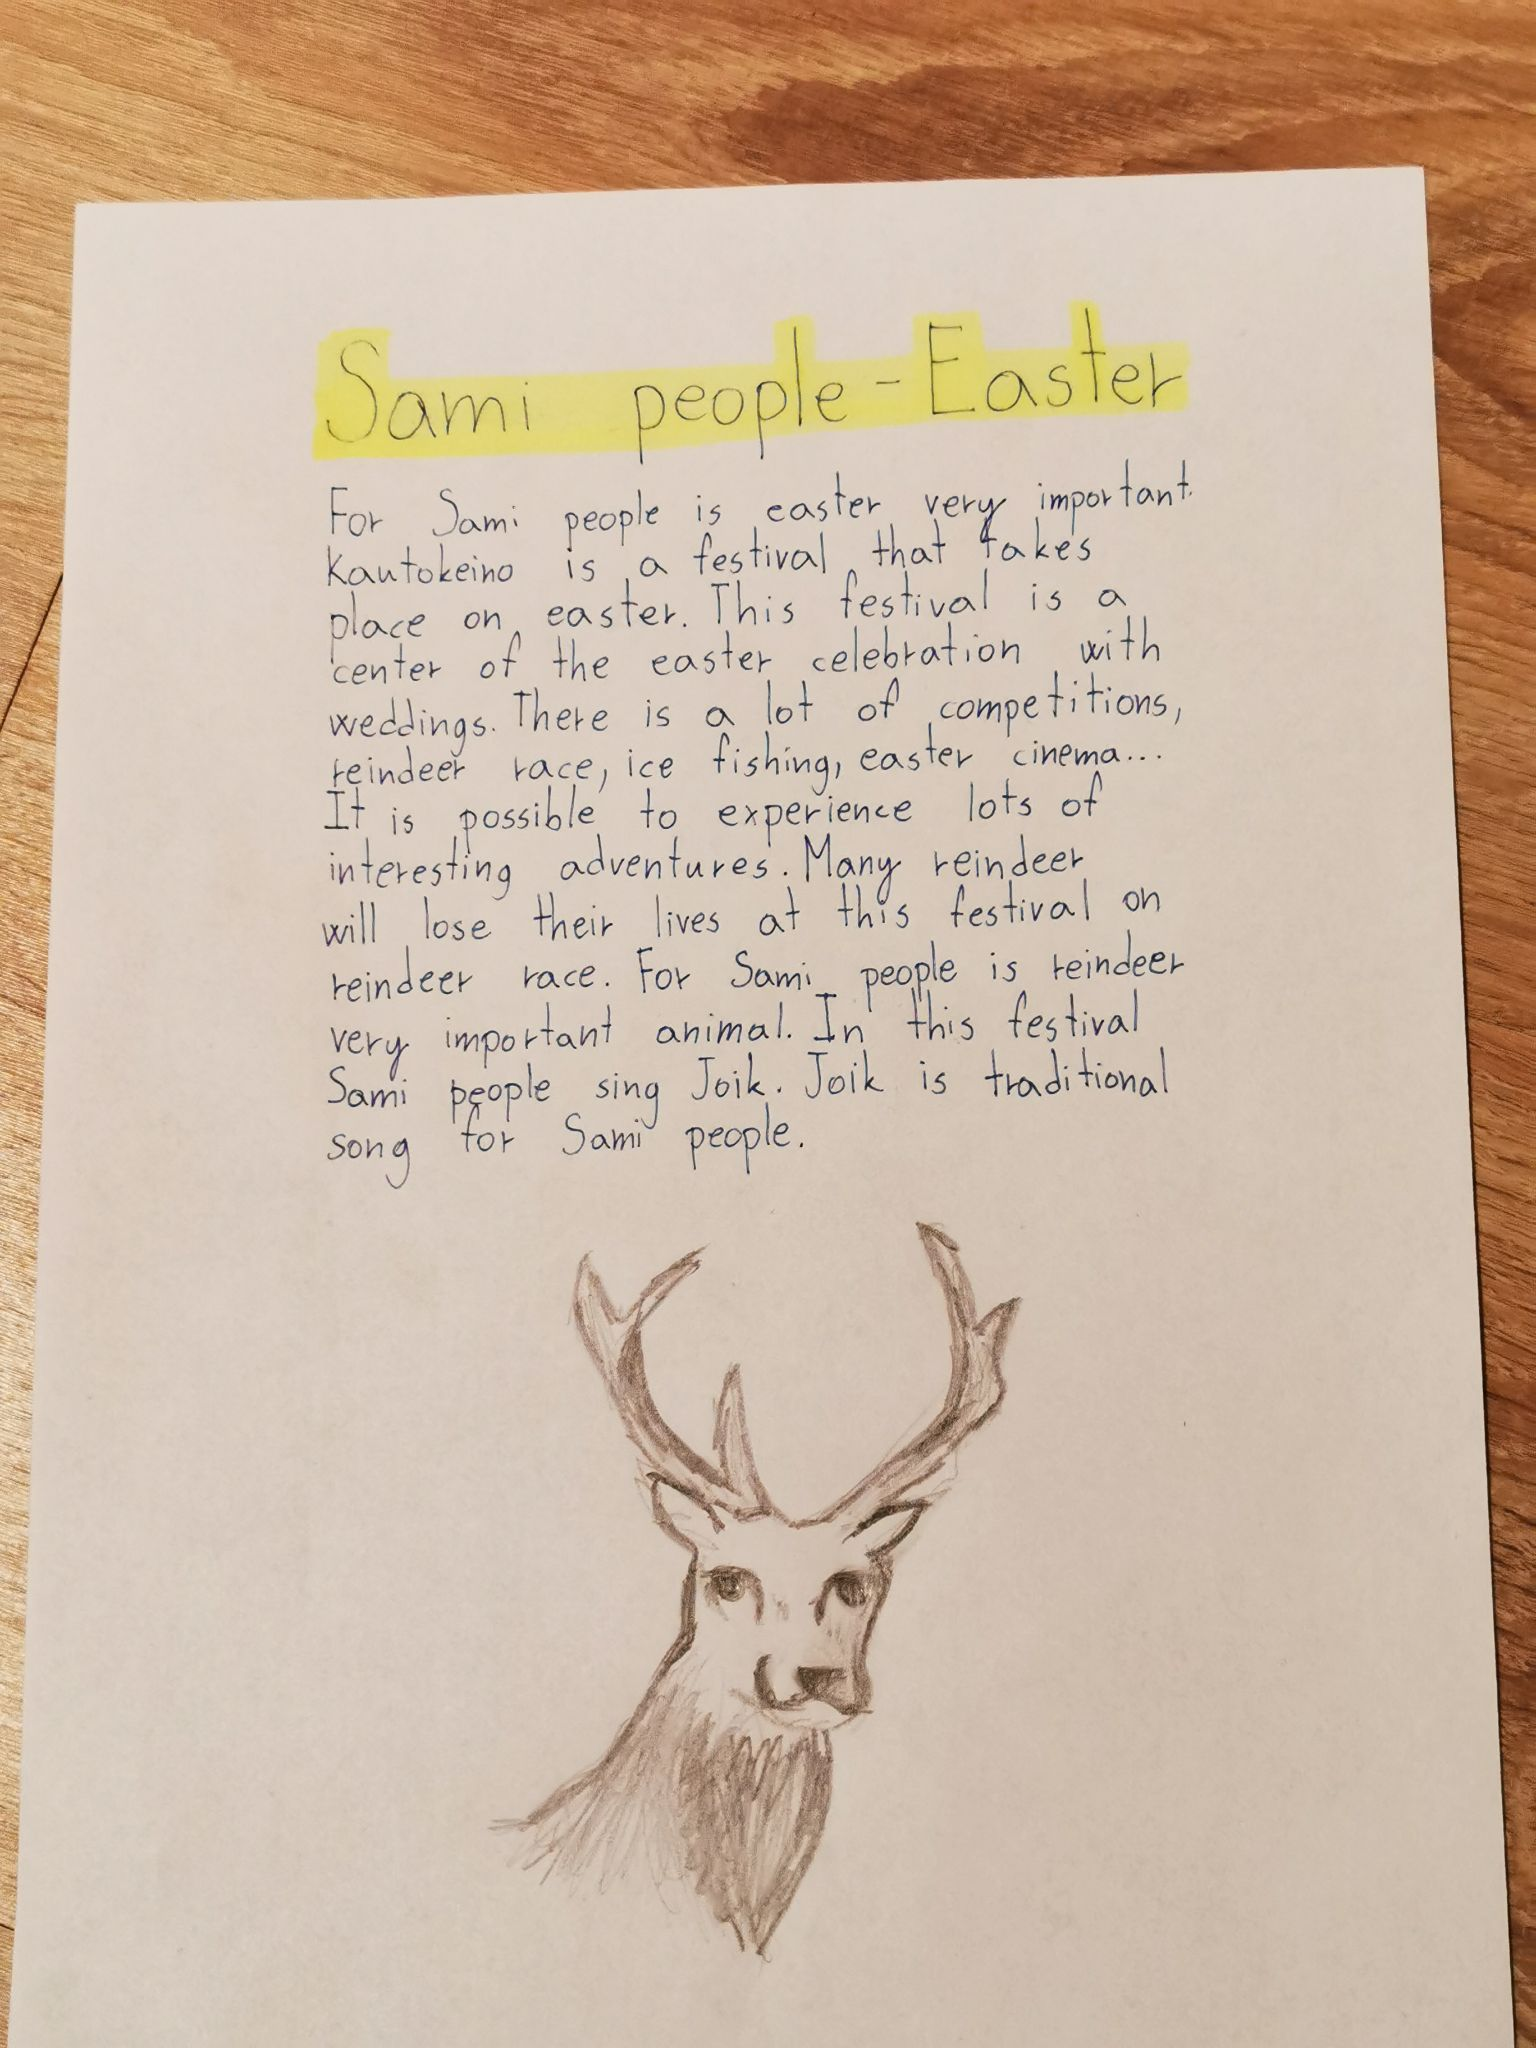 Sami people - Easter
For Sami people is easter very important.
Kautokeino is a festival that takes
place on easter. This festival is a
center of the easter celebration with
weddings. There is a lot of competitions,
reindeer race, ice fishing, easter cinema...
It is possible to experience lots of
interesting adventures. Many reindeer
will lose their lives at this festival on
reindeer race. For Sami people is reindeer
very important animal. In this festival
Sami people sing Joik. Joik is traditional
song for Sami people.